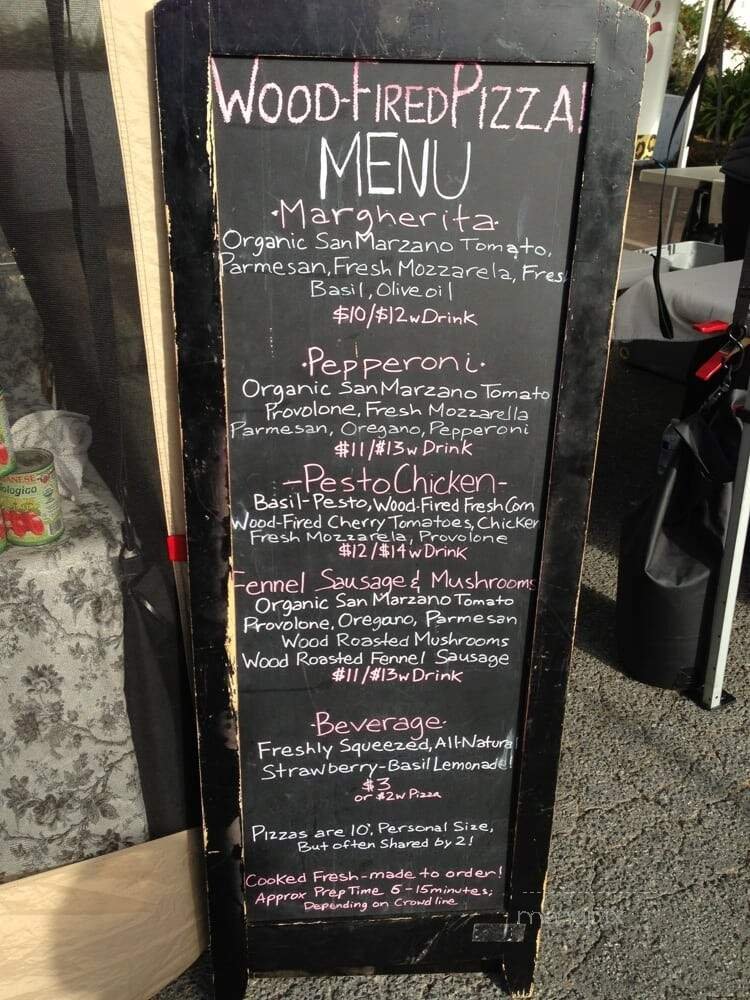 WOOD-FIRED PIZZA!
MENU
·Margherita·
Organic San Marzano Tomato,
Parmesan, Fresh Mozzarela, Fres
Basil, Olive oil
$10/$12 w Drink
·Pepperoni·
Organic San Marzano Tomato
Provolone, Fresh Mozzarella
Parmesan, Oregano, Pepperoni
$11/$13 w Drink
-Pesto Chicken-
Basil-Pesto, Wood-Fired Fresh Corn
Wood-Fired Cherry Tomatoes, Chicken
Fresh Mozzarela, Provolone
$12/$14 w Drink
Fennel Sausage & Mushrooms
Organic San Marzano Tomato
Provolone, Oregano, Parmesan
Wood Roasted Mushrooms
Wood Roasted Fennel Sausage
$11/$13 w Drink
·Beverage·
Freshly Squeezed, All-Natural
Strawberry-Basil Lemonade!
$3
or $2 w Pizza
Pizzas are 10", Personal Size,
But often Shared by 2!
Cooked Fresh-made to order!
Approx Prep Time 5-15 minutes;
Depending on Crowd line
menupix